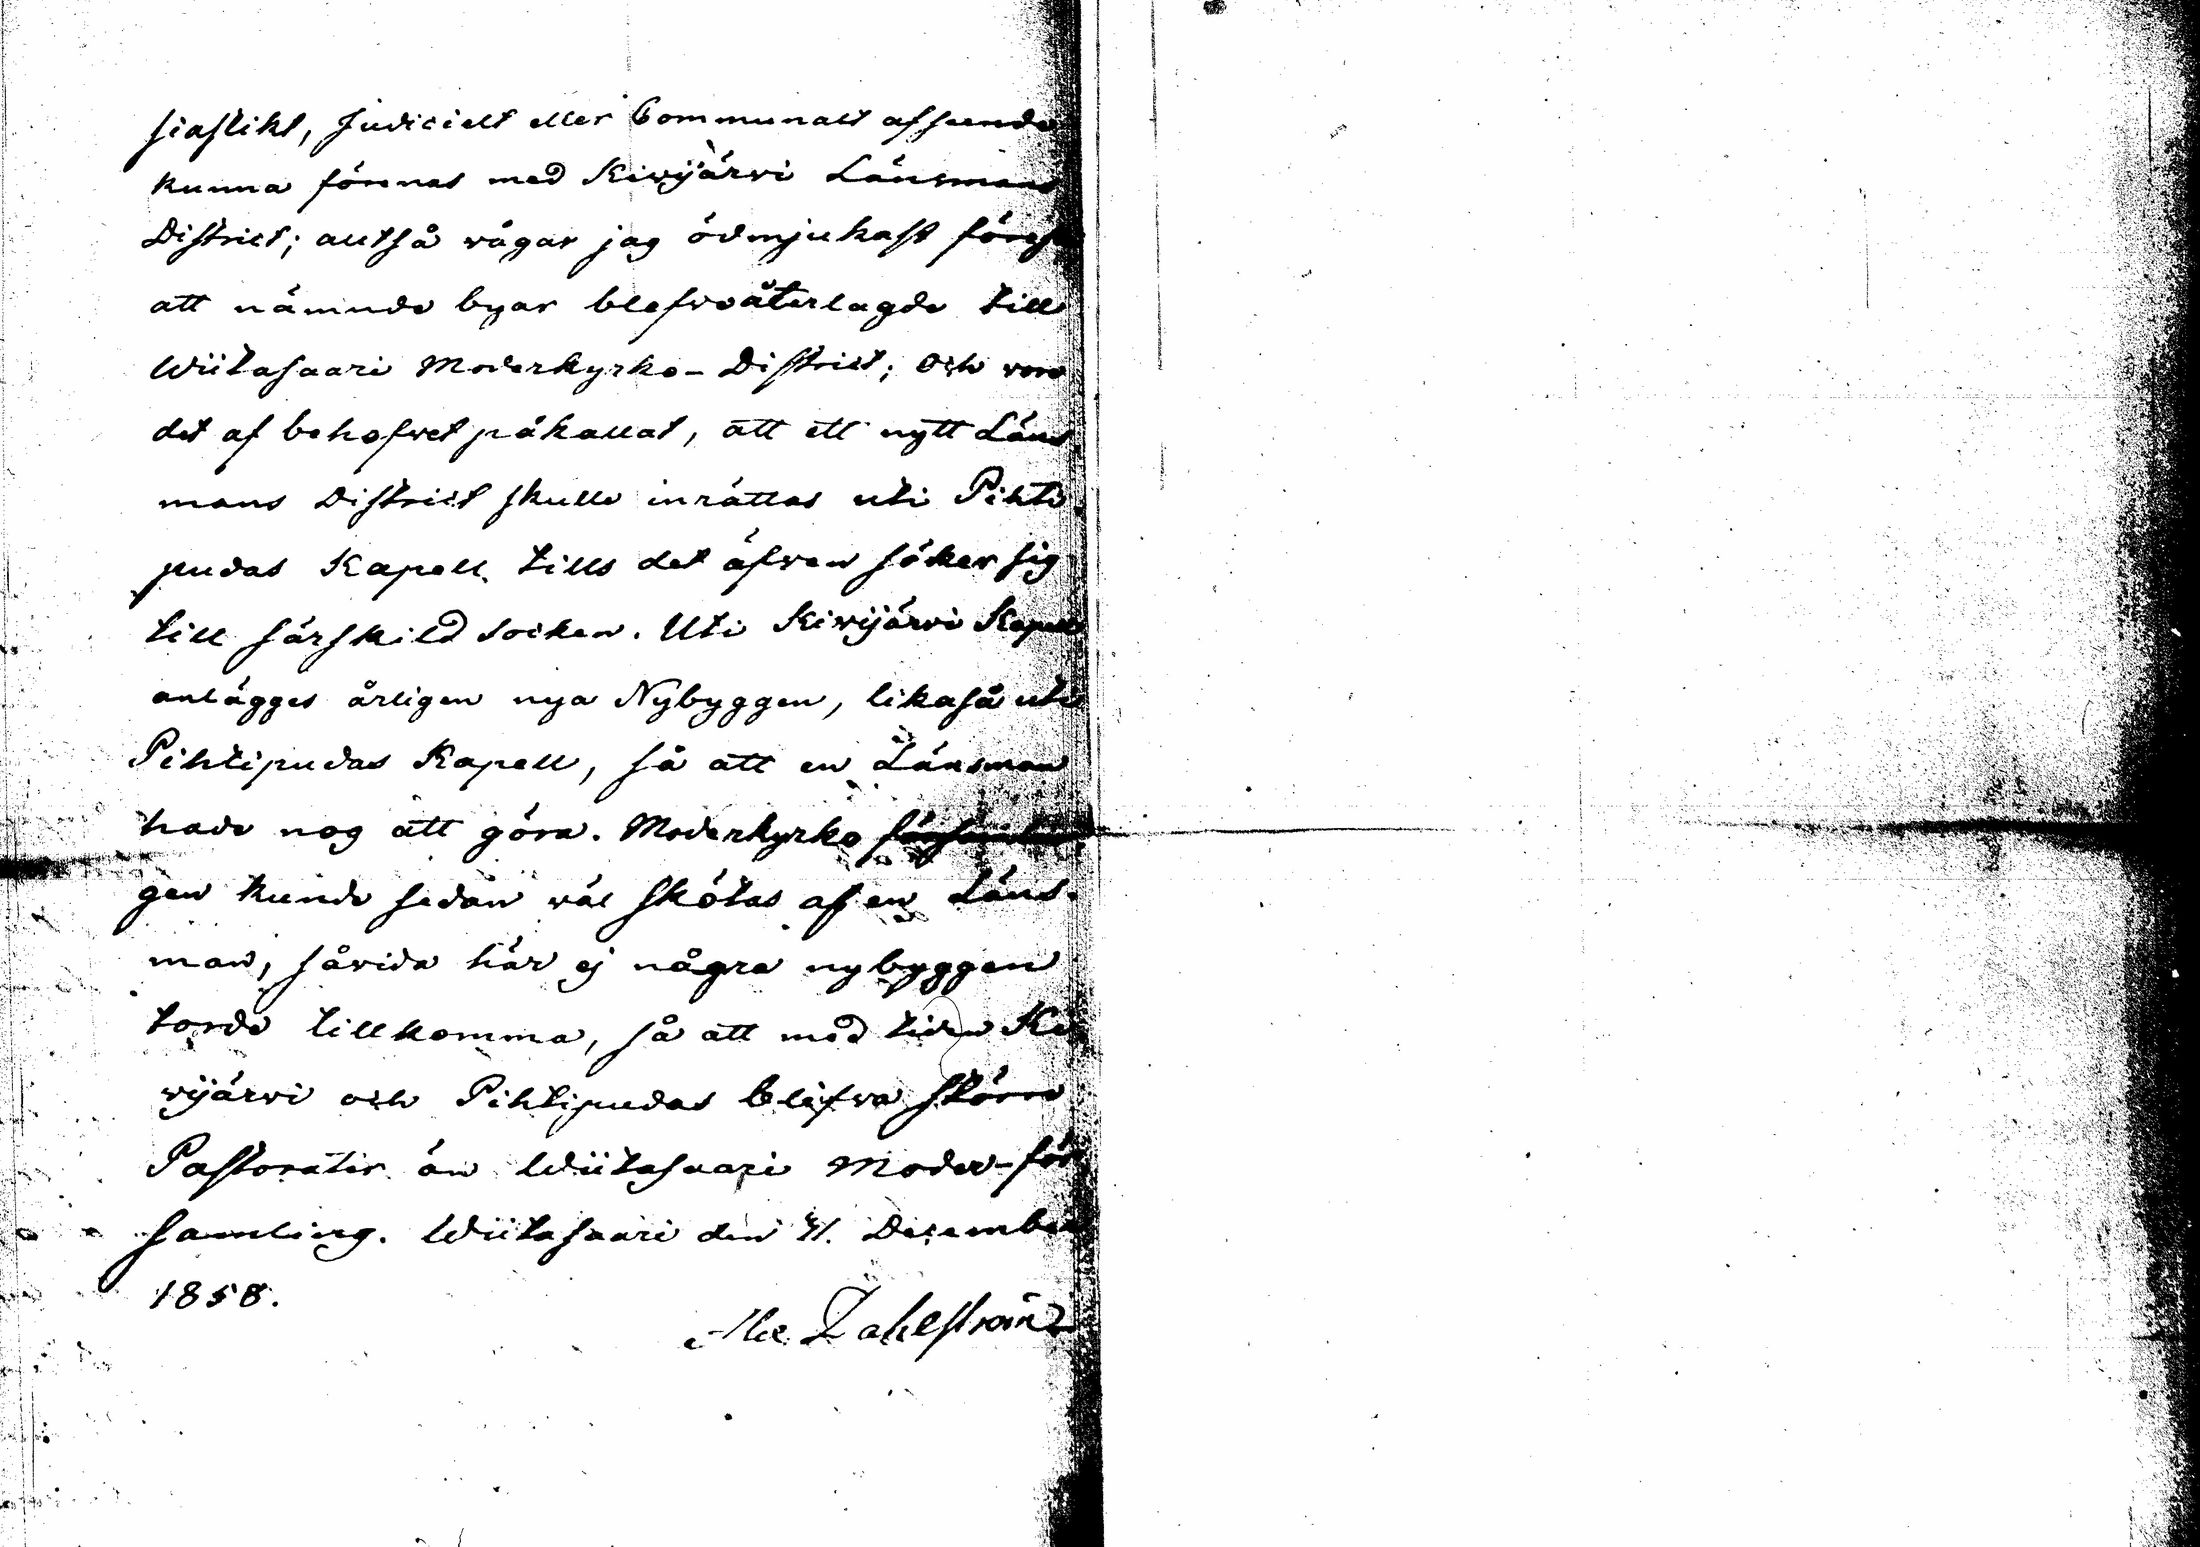 siastikt, Judicielt eller Communalt afseende
kunna förenas med Kivijärvi Länsmans
District; alltså vågar jag ödmjukast föresl
att nämnde byar blefwe återlagde till
Wiitasaari Moderkyrko-District; och vore
det af behofvet påkallat, att ett nytt Läns
mans District skulle inrättas uti Pihti
pudas Kapell, tills det äfven söker sig
till särskild socken. Uti Kivijärvi Kapell
anlägges årligen nya Nybyggen, likaså uti
Pihtipudas Kapell, så att en Länsman
hade nog att göra. Moderkyrko församlin
gen kunde sedan väl skötas af en Läns-
man, såvida här ej några nybyggen
torde tillkomma, så att med tiden Ki
vijärvi och Pihtipudas blifva större
Pastorater än Wiitasaari Moder-för
samling. Wiitasaari den December
1858.
Dahlström